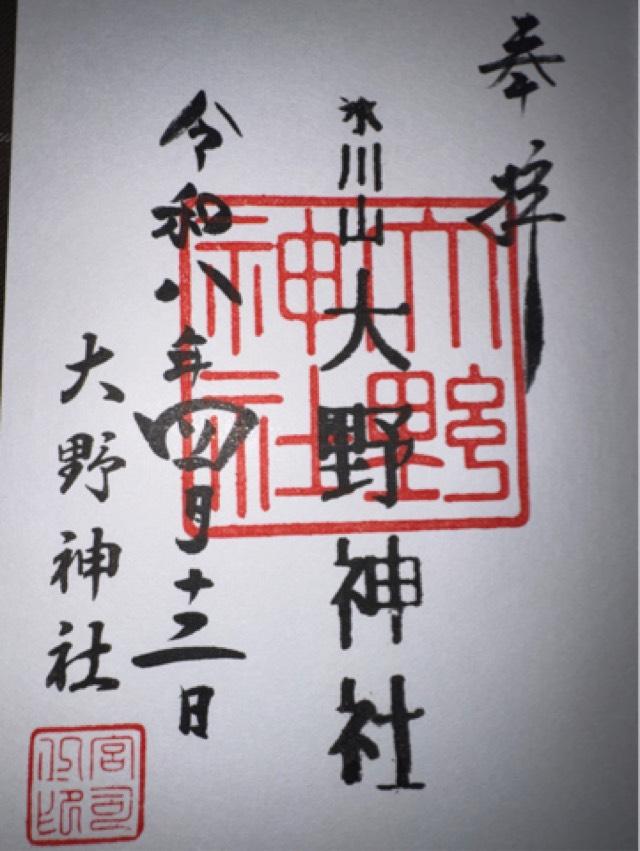 奉拝
氷川山大野神社
大野神社
令和八年四月十二日
大野神社
宮司